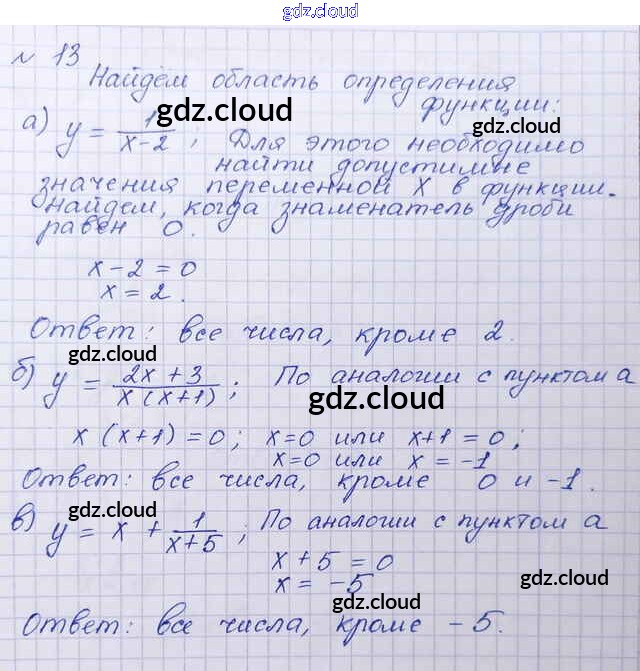 gdz.cloud
№ 13
Найдём область определения
функции:
gdz.cloud
а) y = 1/(x-2) ; Для этого необходимо
найти допустимые
значения переменной x в функции.
Найдем, когда знаменатель дроби
равен 0.
gdz.cloud
x - 2 = 0
x = 2.
Ответ: все числа, кроме 2.
gdz.cloud
б) y = (2x + 3)/(x(x+1)) ; По аналогии с пунктом а
gdz.cloud
x (x+1) = 0; x=0 или x+1 = 0;
x=0 или x = -1
Ответ: все числа, кроме 0 и -1.
gdz.cloud
в) y = x + 1/(x+5) ; По аналогии с пунктом а
x + 5 = 0
x = -5
gdz.cloud
gdz.cloud
Ответ: все числа, кроме -5.